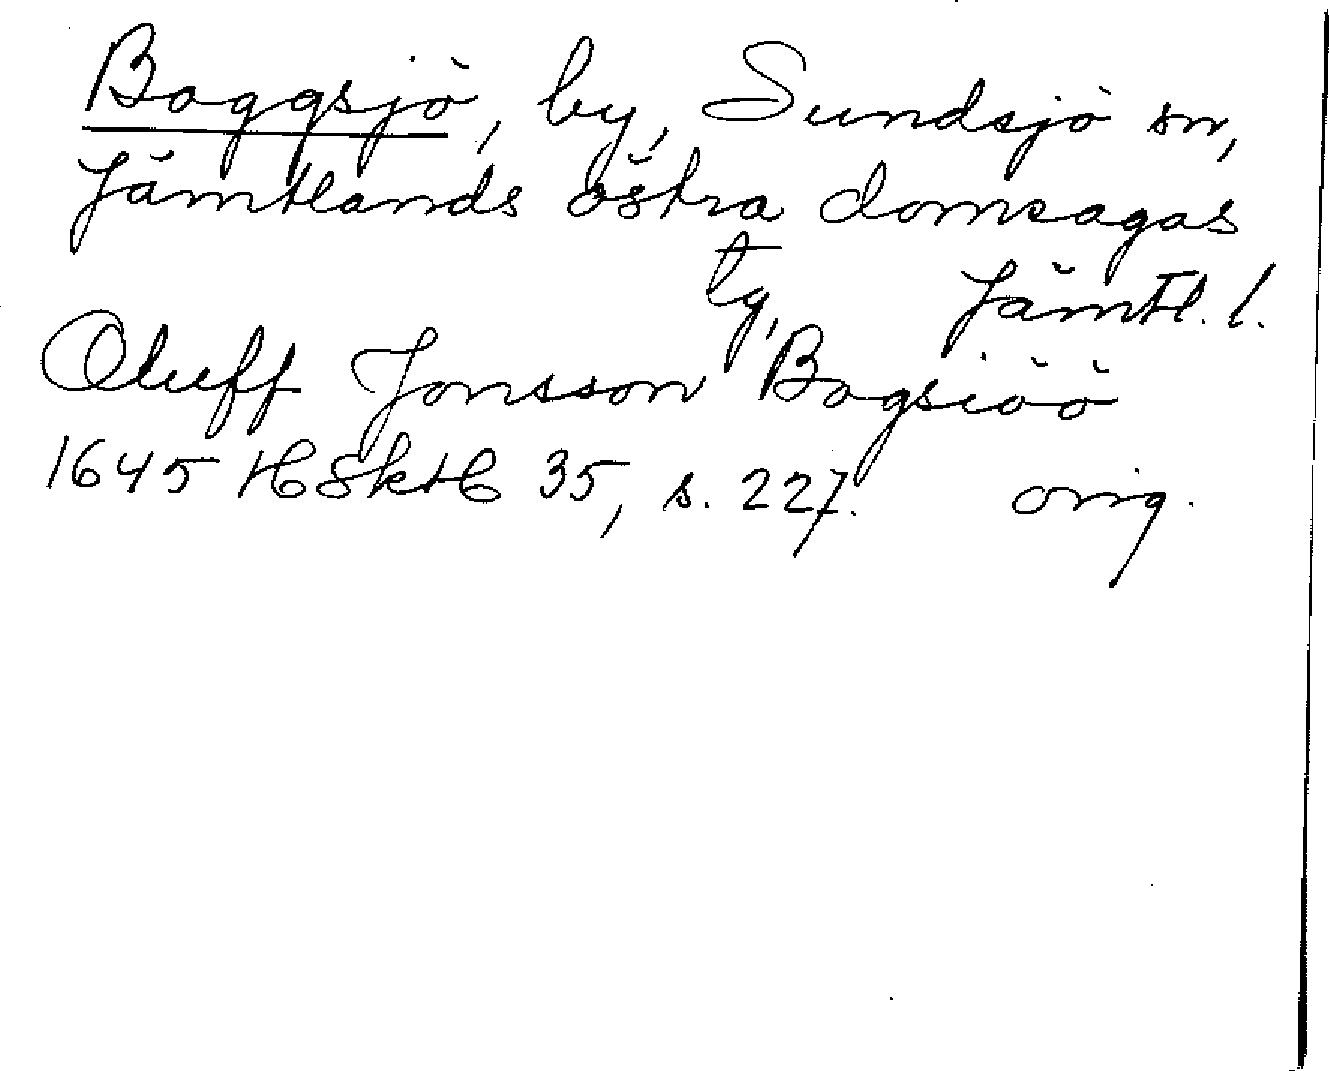 Boggsjö, by, Sundsjö sn,
Jämtlands östra domsagas
tg, Jämtl. l.
Oluff Jonsson Bogsiöö
1645 HSkH 35, s. 227. orig.